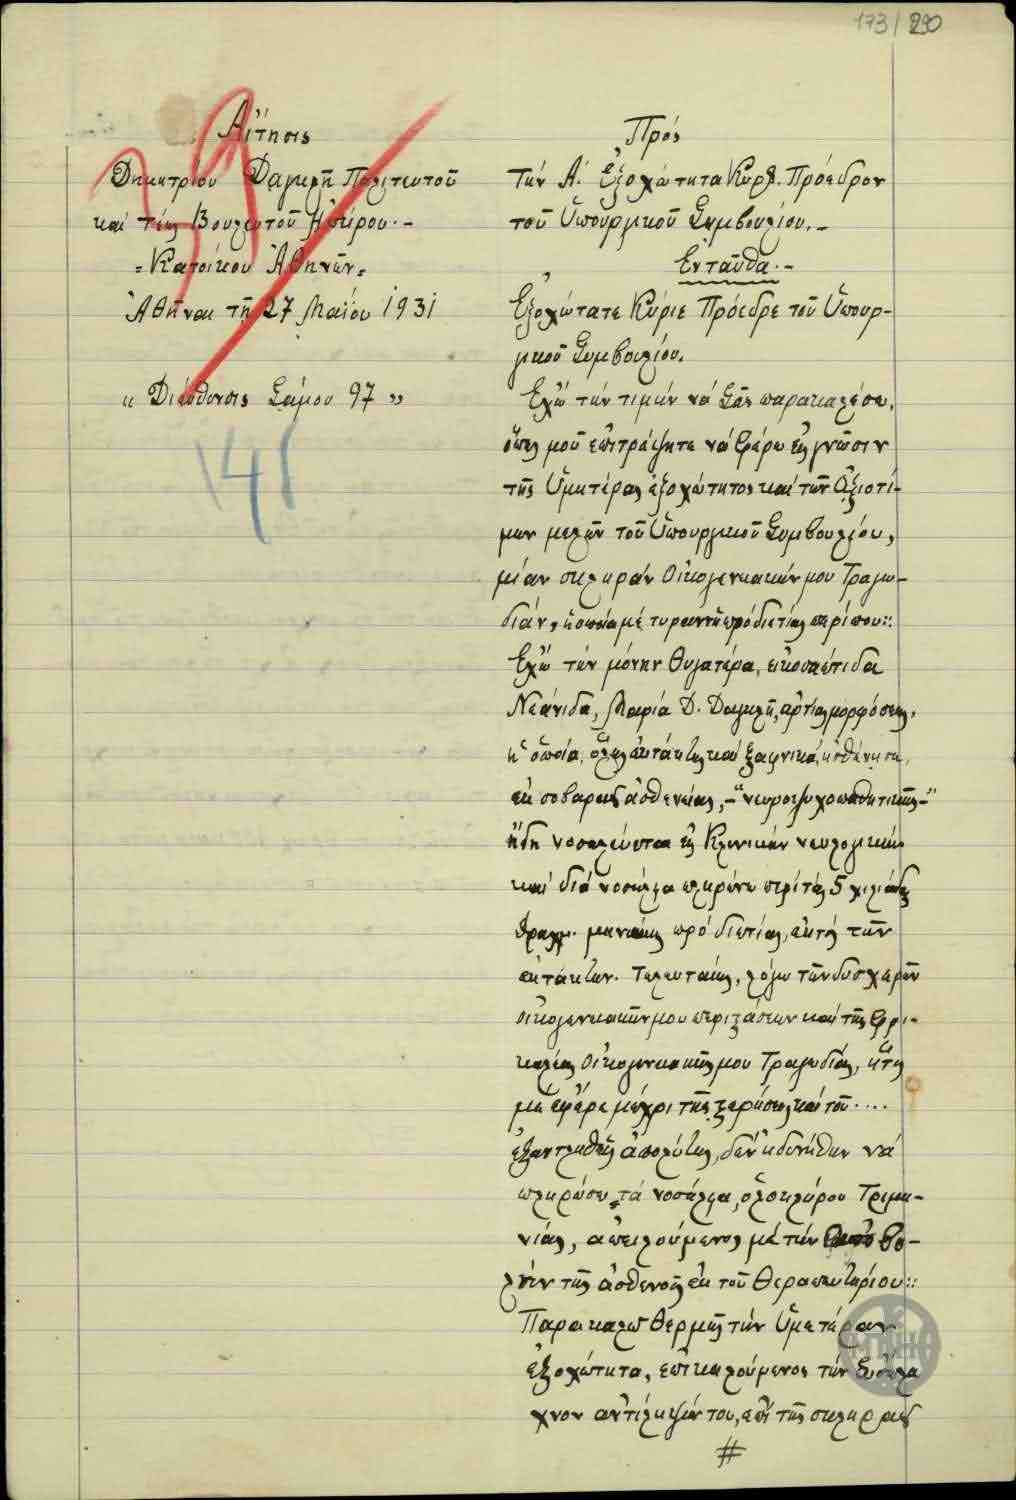 173/290
Αἴτησις
Δημητρίου Δαγκλῆ Πολιτευτοῦ
καί τέως Βουλευτοῦ Ἠπείρου.-
=Κατοίκου Ἀθηνῶν=
Ἀθῆναι τῇ 27 Μαΐου 1931
« Διεύθυνσις Σάμου 97 »
141
Πρός
Τήν Α. Ἐξοχώτητα Κύρ. Πρόεδρον
τοῦ Ὑπουργικοῦ Συμβουλίου.-
Ἐνταῦθα.-
Ἐξοχώτατε Κύριε Πρόεδρε τοῦ Ὑπουρ-
γικοῦ Συμβουλίου.
Ἔχω τήν τιμήν νά Σᾶς παρακαλέσω,
ὅπως μοῦ ἐπιτρέψητε νά φέρω εἰς γνῶσιν
τῆς Ὑμετέρας ἐξοχώτητος καί τῶν Ἀξιοτί-
μων μελῶν τοῦ Ὑπουργικοῦ Συμβουλίου,
μίαν σκληράν Οἰκογενειακήν μου Τραγω-
δίαν, ἡ ὁποία μέ τυραννῆ πρό διετίας περίπου::
Ἔχω τήν μόνην θυγατέρα, εἰκοσαέτιδα
Νεάνιδα, Μαρία Δ. Δαγκλῆ, ἀρτίας μορφώσεως,
ἡ ὁποία, ὅλως ἐκτάκτως καί ξαφνικά, ἠσθένησε,
ἐκ σοβαρᾶς ἀσθενείας, -"νευροψυχοπαθητικῆς-"
ἤδη νοσηλεύεται εἰς Κλινικήν νευρολογικήν
καί διά νοσήλεια πληρώνω περί τάς 5 χιλιάδας
δραχμ. μηνιαίως πρό διετίας, ἐκτός τῶν
ἐκτάκτων. Τελευταίως, λόγω τῶν δυσχερῶν
οἰκογενειακῶν μου περιστάσεων καί τῆς φρι-
καλέας Οἰκογενειακῆς μου Τραγωδίας, ἥτις
μέ ἔφερε μέχρι τῆς στερήσεως καί τοῦ ....
ἐξαντληθείς ἀπολύτως, δέν ἠδυνήθην νά
πληρώσω τά νοσήλεια, ὁλοκλήρου Τριμη-
νίας, ἀπειλούμενος μέ τήν ἀποβο-
λήν τῆς ἀσθενοῦς ἐκ τοῦ Θεραπευτηρίου::
Παρακαλῶ θερμῶς τήν Ὑμετέραν
ἐξοχώτητα, ἐπικαλούμενος τήν Εὔσπλα
χνον ἀντίληψίν του, ἐπί τῆς σκληρᾶς
#